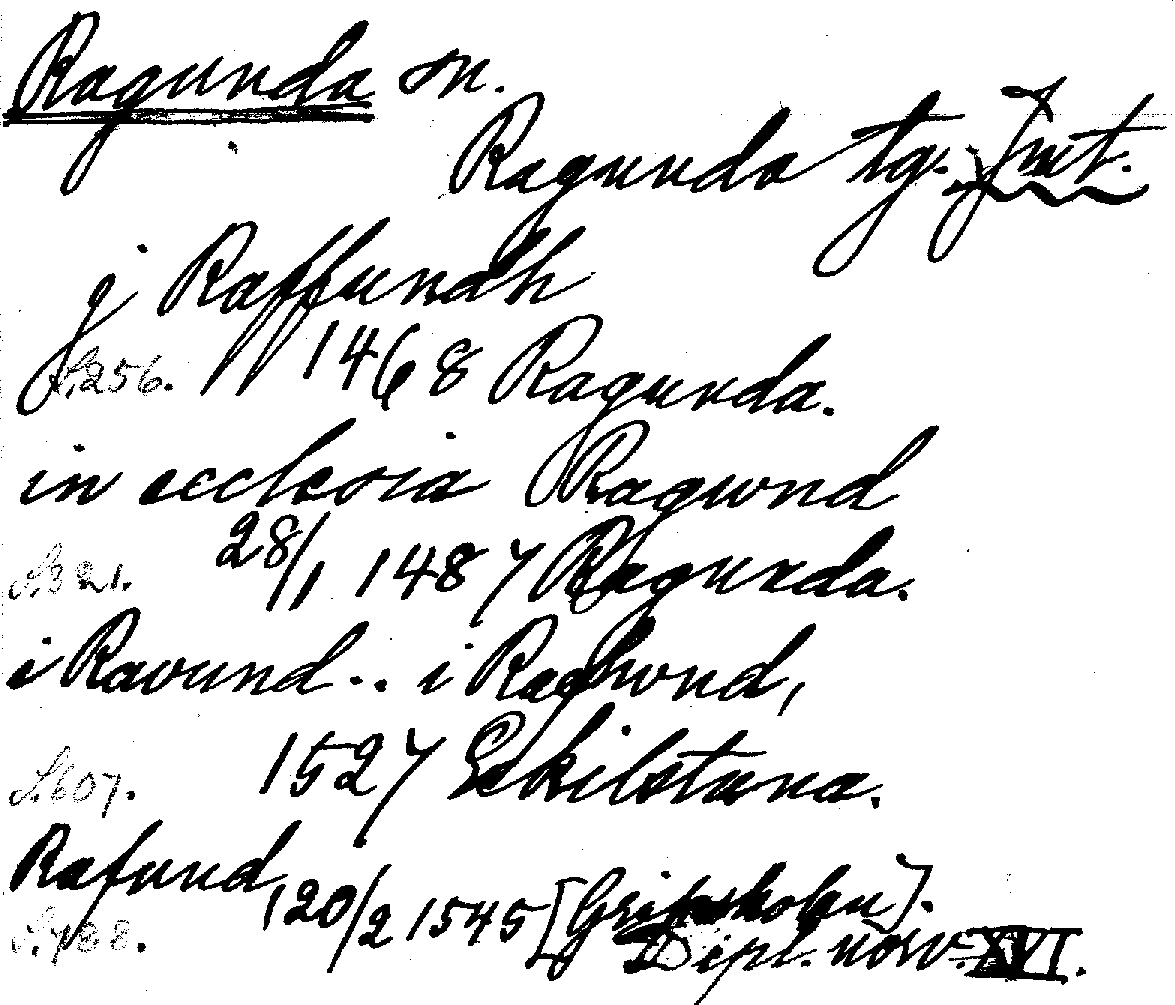 Ragunda sn.
Ragunda tg. Jmt.
j Raffundh
S. 256. 1468 Ragunda.
in ecclesia Ragwnd
S. 321. 28/1 1487 Ragunda.
i Ravund .. i Raghwnd,
S. 607. 1527 Eskilstuna.
Rafund,
S. 788. 20/2 1545 [Gripsholm].
Dipl. norv. XVI.